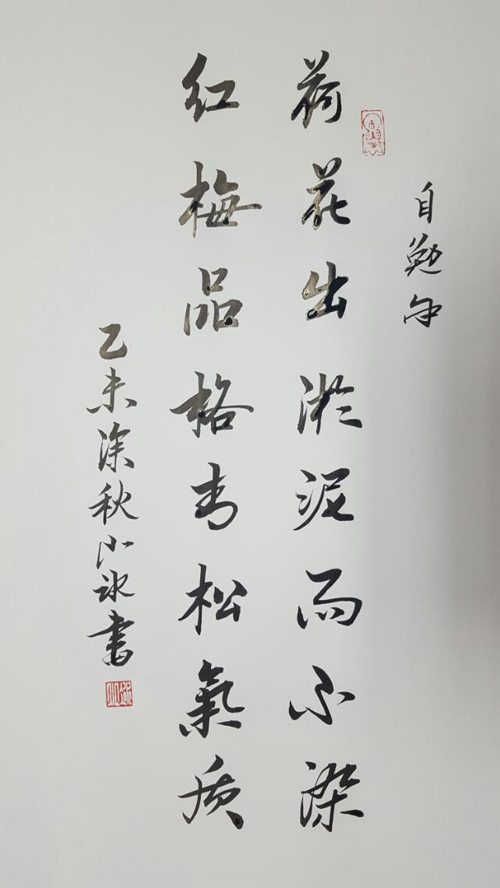 自勉
荷花出淤泥而不染
红梅品格青松氣质
乙未深秋小冰書